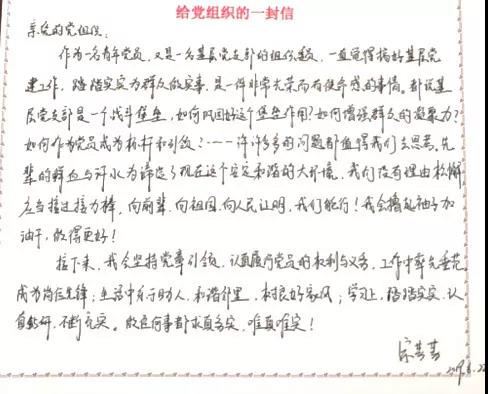 给党组织的一封信
亲爱的党组织:
作为一名青年党员,又是一名基层党支部的组织委员,一直觉得搞好基层党
建工作,踏踏实实为群众做实事,是一件非常光荣而有使命感的事情。都说基
层党支部是一个战斗堡垒,如何巩固好这个堡垒作用?如何增强群众的凝聚力?
如何作为党员成为标杆和引领?……许许多多的问题都值得我们去思考,先
辈的鲜血与汗水为缔造了现在这个安定和谐的大环境,我们没有理由松懈
应当接过接力棒,向前辈、向祖国、向人民证明,我们能行!我会撸起袖子加
油干,做得更好!
接下来,我会坚持党章引领,认真履行党员的权利与义务,工作中率先垂范,
成为岗位先锋;生活中乐于助人,和谐邻里,树良好家风;学习上,踏踏实实,认
真钻研,不断充实。做任何事都求真务实,唯真唯实!